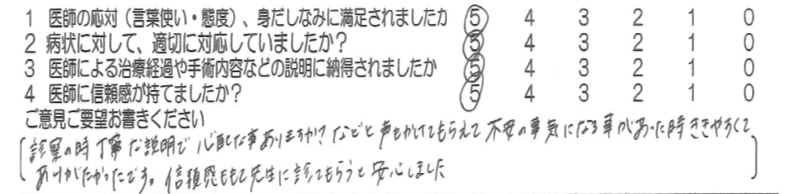 1 医師の応対（言葉使い・態度）、身だしなみに満足されましたか 5 4 3 2 1 0
2 病状に対して、適切に対応していましたか？ 5 4 3 2 1 0
3 医師による治療経過や手術内容などの説明に納得されましたか 5 4 3 2 1 0
4 医師に信頼感が持てましたか？ 5 4 3 2 1 0
ご意見ご要望お書きください
診察の時丁寧な説明で心配な事ありますか？などと声もかけてもらえて不安の事気になる事があった時ききやすくて
ありがたかったです。信頼感ももて先生に診てもらうと安心しました